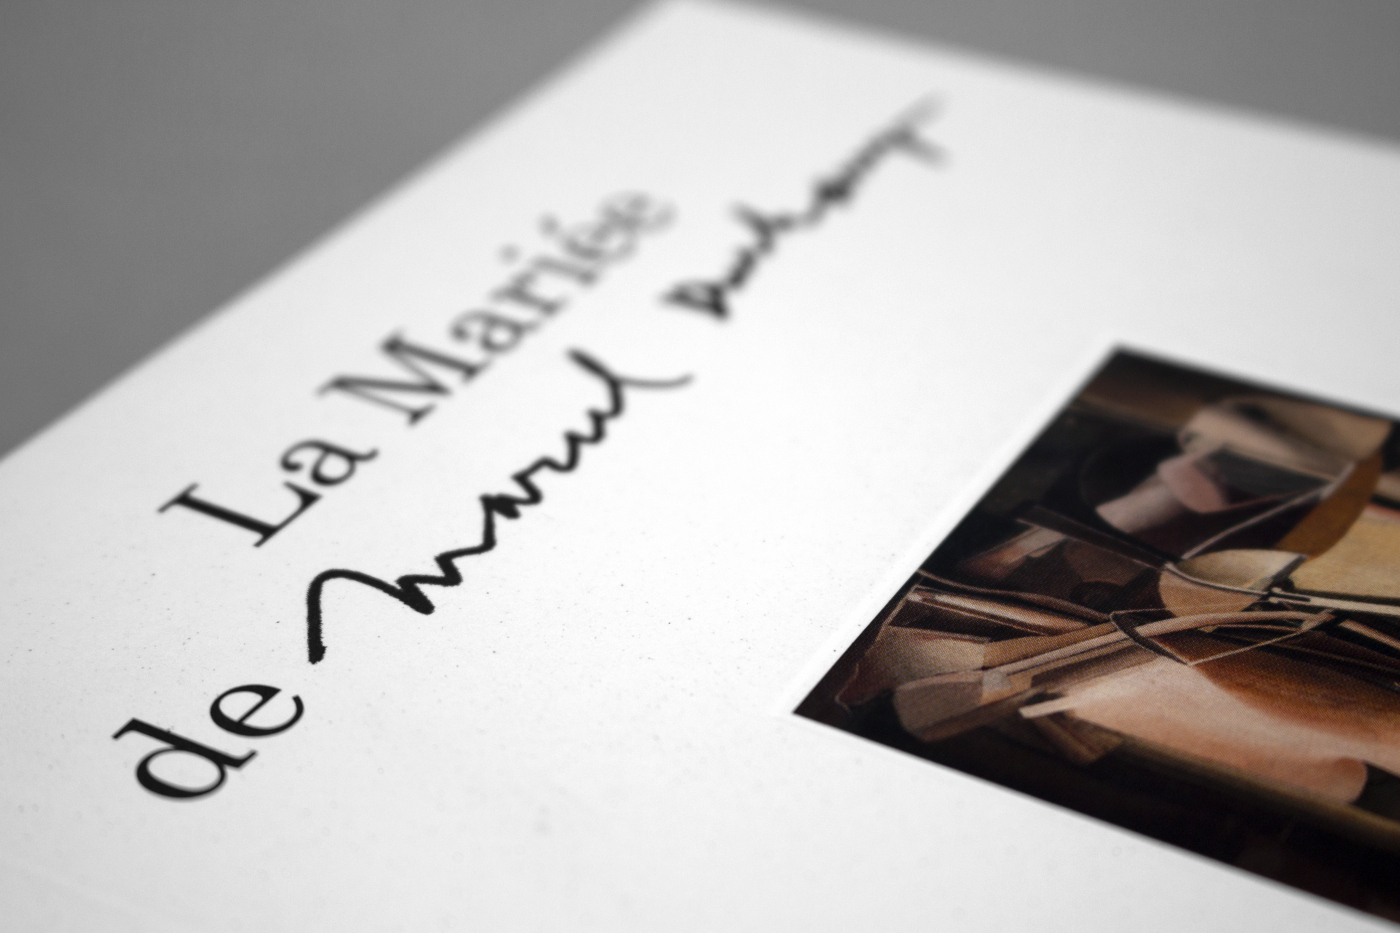 La Mariée
de Marcel Duchamp